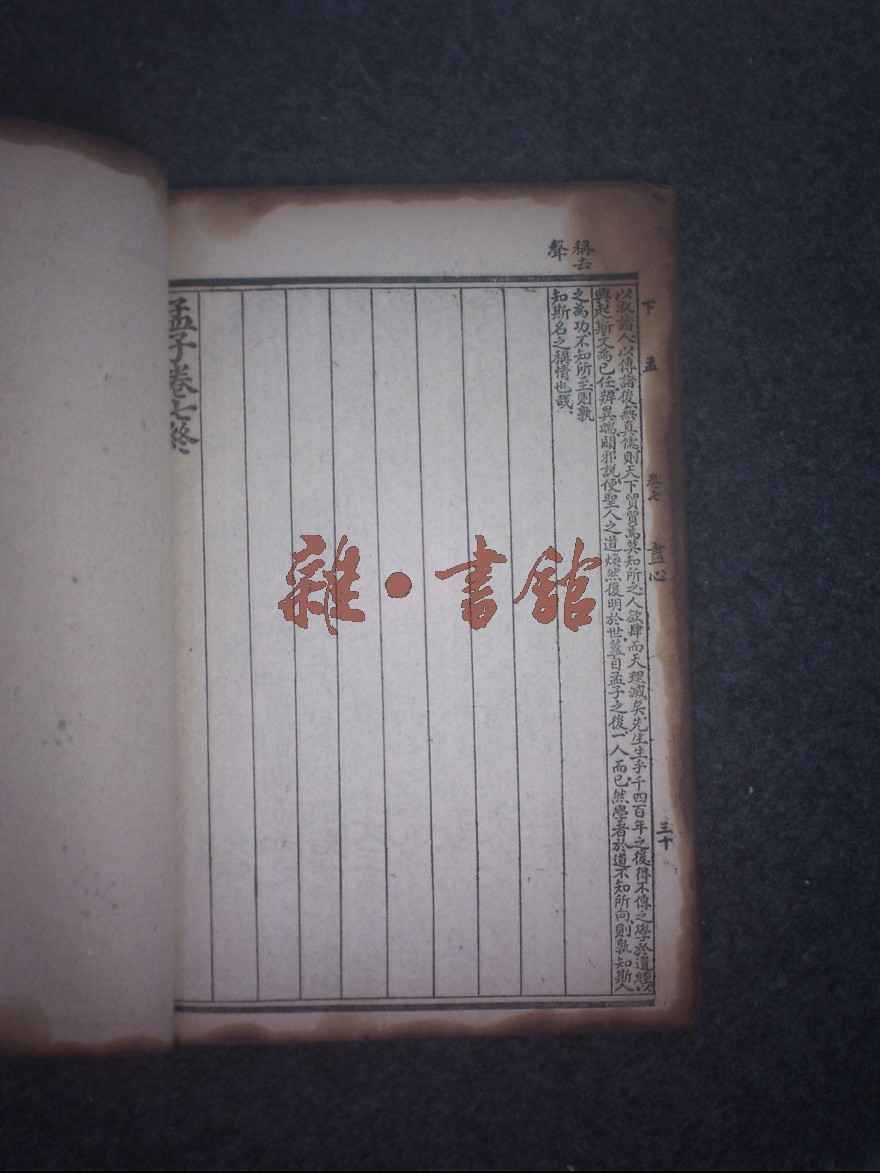 稱去
聲
下孟
卷七
盡心
三十
以取諸人以傳諸後無真儒則天下貿貿焉莫知所之人欲肆而天理滅矣先生生乎千四百年之後得不傳之學於遺經以
興起斯文為己任辨異端闢邪說使聖人之道煥然復明於世蓋自孟子之後一人而已然學者於道不知所向則孰知斯人
之為功不知所至則孰
知斯名之稱情也哉
孟子卷七終
雜·書館